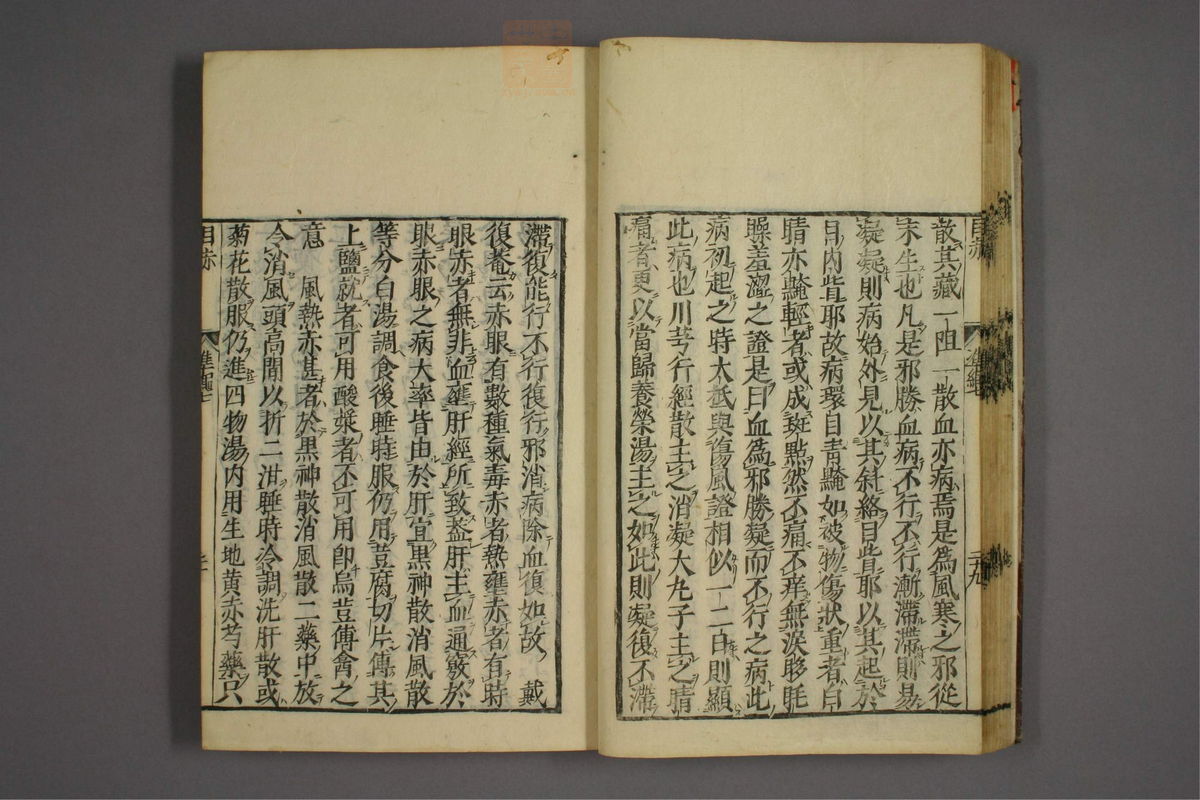 散其藏一阻一散血亦病焉是爲風寒之邪從
末生也凡是邪勝血病不行不行漸滯滯則易
凝凝則病始外見以其斜絡目眥耶以其起於
目內眥耶故病環目青黤如被物傷狀重者白
睛亦黤輕者或成斑點然不痛不痒無淚眵眊
矂羞澀之證是曰血爲邪勝凝而不行之病此
病初起之時太祗與傷風證相似一二日則顯
此病也川芎行經散主之消凝大丸子主之睛
痛者更以當歸養榮湯主之如此則凝復不滯
目赤
二九
滯復能行不行復行邪消病除血復如故 戴
復菴云赤眼有數種氣毒赤者熱壅赤者有時
眼赤者無非血壅肝經所致葢肝主血通竅於
眼赤眼之病大率皆由於肝宜黑神散消風散
等分白湯調食後睡時服仍用荳腐切片傅其
上鹽就者可用酸漿者不可用卽烏荳傅肏之
意 風熱亦甚者於黑神散消風散二藥中放
令消風頭高間以折二泔睡時冷調洗肝散或
菊花散服仍進四物湯內用生地黃赤芍藥只
目赤
準繩七